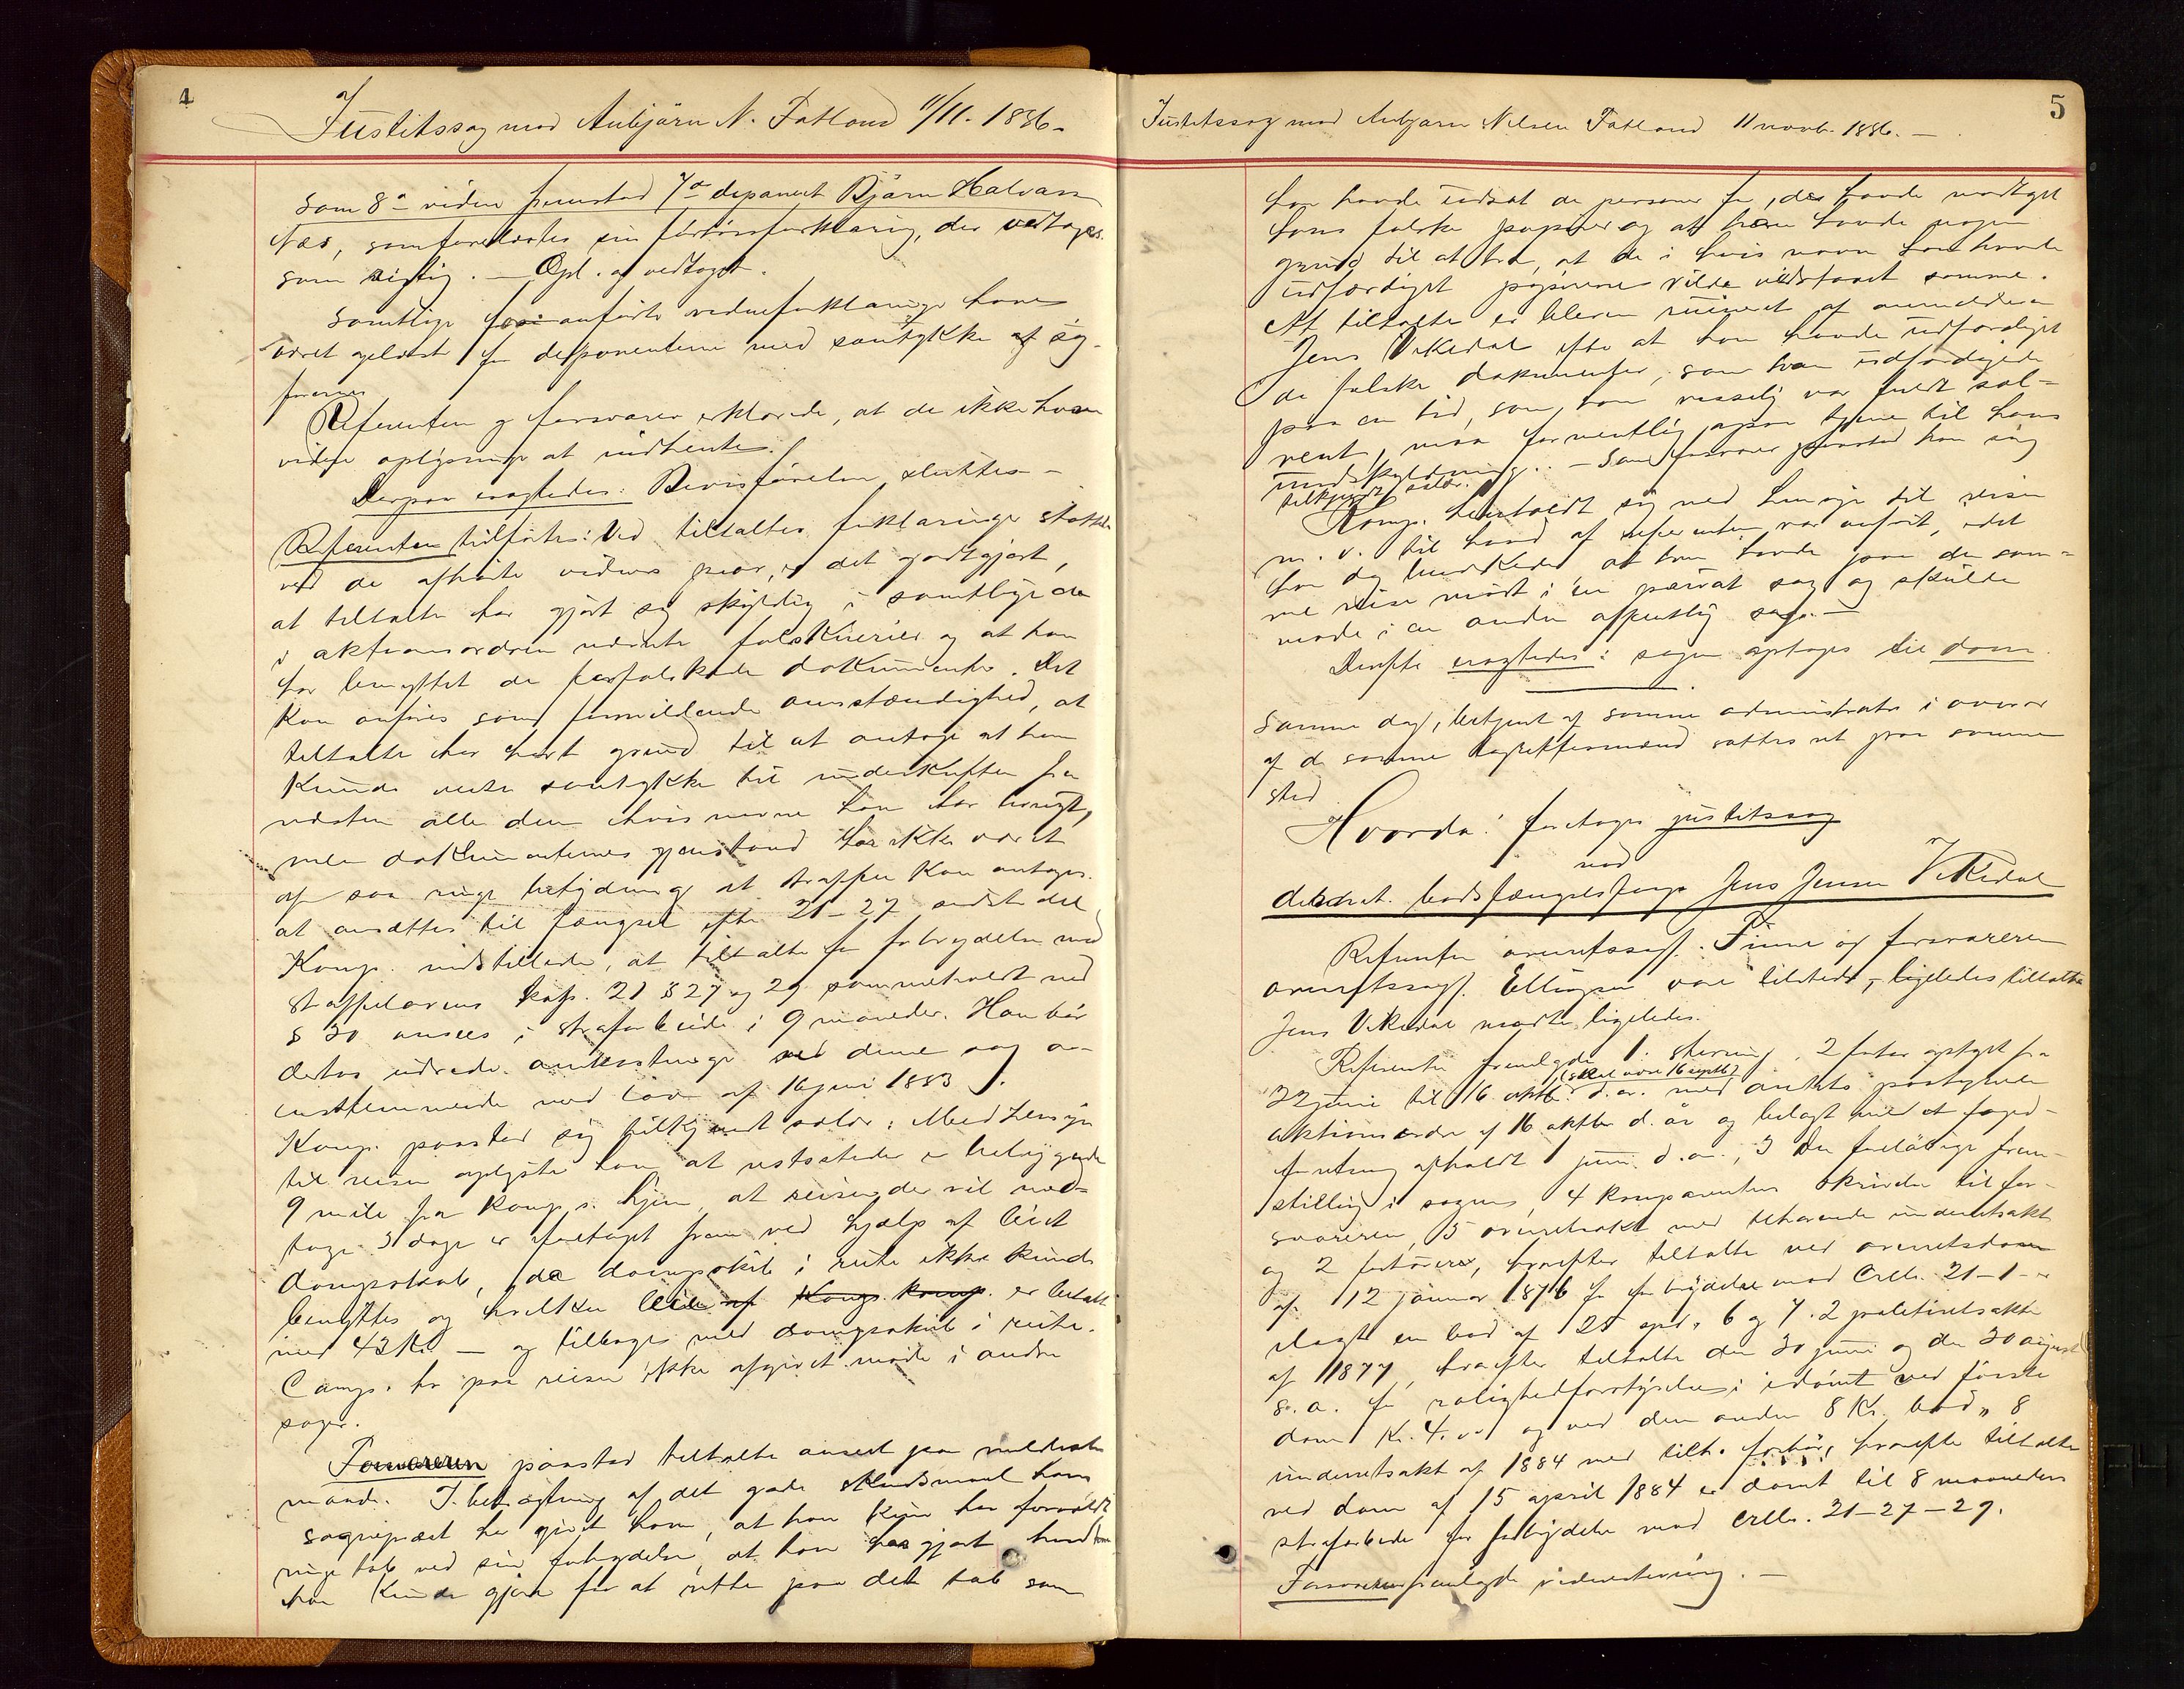 4
Justitssag mod Aubjörn N. Fatland 11/11. 1886 -
som 8de vidne fremstod 7de deponent Bjørn Halvars
Næs, som forelæstes sin forhørsforklaring, der vedtoges
som rigtig. — Opl. og vedtaget.
Samtlige anførte vidneforklaringer have
været oplæst for deponenterne med samtykke af sag-
førerne
Referenten og forsvarer erklærede, at de ikke have
videre oplysninger at indhente.
Derpaa eragtedes: Bevisførelsen sluttes -
Referenten tilførte: Ved tiltaltes forklaringer støttede
ved de afhørte vidners prov, er det godtgjort,
at tiltalte har gjort sig skyldig i samtlige de
i aktionsordren nævnte falsknerier og at han
har benyttet de forfalskede dokumenter. Det
kan anføres som formildende omstændighed, at
tiltalte har havt grund til at antage at han
kunde vente samtykke til underskriften fra
næsten alle dem hvis navne han har brugt,
men dokumenternes gjenstand har ikke været
af saa ringe betydning at straffen kan antages
at ansættes til fængsel efter 21-27 sidste del
Komp. indstillede, at tiltalte for forbrydelse mod
straffelovens kap. 21 § 27 og 29 sammenholdt med
§ 30 ansees i strafarbeide i 9 maaneder. Han bør
derhos udrede omkostninger ved denne sag ov-
ensstemmende med lov af 16 juni 1883.
Komp. paastod sig tilkjendt salær. Med hensyn
til reisen oplyste han at retsstedet er beliggende
9 mile fra komp.s hjem, at reisen der vil med-
tage 3 dage er foretaget frem ved hjælp af leiet
dampskib, da dampskib i rute ikke kunde
benyttes og hvilken leie af Komp. komp. er betalt
med 43 Kr. — og tilbage med dampskib i rute.
Comp. har paa reisen ikke afgivet møde i andre
sager.
Forsvareren paastod tiltalte anseet paa mildeste
maade. I betragtning af det gode skudsmaal hans
sogneprest har givet ham, at han kun har forvoldt
ringe tab ved sin forbrydelse, at han har gjort hvad
han kunde gjøre for at rette paa det tab som
5
Justitssag mod Aubjørn Nilsen Fatland 11 novb. 1886. —
han havde udsat de personer for, der havde modtaget
hans falske papirer og at han havde nogen
grund til at tro, at de i hvis navn han havde
udfærdiget papirerne vilde vedstaaet samme.
At tiltalte er bleven ruineret af anmelderen
Jens Vikedal efter at han havde udfærdiget
de falske dokumenter, som han udfærdigede
paa en tid, som han visselig var fuldt sol-
vent, maa formentlig ogsaa tjene til hans
undskyldning. — Som forsvarer paastod han sig
tilkjendt salær.
Komp. henholdt sig med hensyn til reisen
m. v. til hvad af referenten var anført, idet
han dog bemærkede at han havde paa den sam-
me reise mødt i en privat sag og skulde
møde i en anden offentlig sag. —
Derefter eragtedes: sagen optages til dom.
Samme dag, betjent af samme administrator i overvær
af de samme lagrettesmænd sattes ret paa samme
sted
Hvorda: foretoges justitssag
mod
Jens Jensen Vikedal
Referenten overretssagf. Finne og forsvareren
overretssagf. Ellingsen vare tilstede, — ligeledes tiltalte
Jens Vikedal mødte ligeledes.
Referenten fremlagde 1. stevning, 2 forhør optaget fra
(skal være 16 septb)
22 juni til 16 oktbr. d.a. med amtets paategnede
aktionsordre af 16 oktbr d. år og belagt med et foged-
forretning afholdt 1 juni d.a., 3 Den foreløbige frem-
stilling i sagen, 4 komparentens skrivelse til for-
svareren, 5 overretsakt med tilhørende underretsakt
og 2 forhører, hvorefter tiltalte ved overretsdom
af 12 januar 1876 for forbrydelse mod Crllv. 21-1- er
ilagt en bod af 25 spd. 6 og 7. 2 politiretsakter
af 1877, hvorefter tiltalte den 30 juni og den 30 august
s. a. for rolighedsforstyrelse i idømt ved første
dom Kr. 4.00 og ved den anden 8 Kr. bod, 8
underretsakt af 1884 med tilh. forhør, hvorefter tiltalte
ved dom af 15 april 1884 er dømt til 8 maaneders
strafarbeide for forbrydelse mod Crllv. 21-27-29.
Forsvareren fremlagde vidnestevning. —